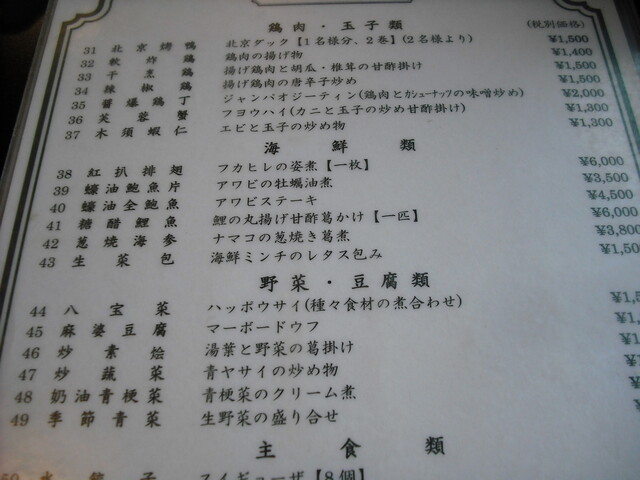 鶏肉・玉子類 (税別価格)
31 北京烤鴨 北京ダック【1名様分、2巻】(2名様より) ¥1,500
32 軟炸鶏 鶏肉の揚げ物 ¥1,400
33 干烹鶏 揚げ鶏肉と胡瓜・椎茸の甘酢掛け ¥1,500
34 辣椒鶏 揚げ鶏肉の唐辛子炒め ¥1,500
35 醤爆鶏丁 ジャンバオジーティン(鶏肉とカシューナッツの味噌炒め) ¥2,000
36 芙蓉蟹 フヨウハイ(カニと玉子の炒め甘酢掛け) ¥1,300
37 木須蝦仁 エビと玉子の炒め物 ¥1,300
海鮮類
38 紅扒排翅 フカヒレの姿煮【一枚】 ¥6,000
39 蠔油鮑魚片 アワビの牡蠣油煮 ¥3,500
40 蠔油全鮑魚 アワビステーキ ¥4,500
41 糖醋鯉魚 鯉の丸揚げ甘酢葛かけ【一匹】 ¥6,000
42 葱焼海参 ナマコの葱焼き葛煮 ¥3,800
43 生菜包 海鮮ミンチのレタス包み ¥1,50
野菜・豆腐類
44 八宝菜 ハッポウサイ(種々食材の煮合わせ) ¥1,5
45 麻婆豆腐 マーボードウフ ¥1,
46 炒素烩 湯葉と野菜の葛掛け ¥1,
47 炒蔬菜 青ヤサイの炒め物 ¥1
48 奶油青梗菜 青梗菜のクリーム煮 ¥
49 季節青菜 生野菜の盛り合せ
主食類
50 水餃子 スイギョーザ【8個】